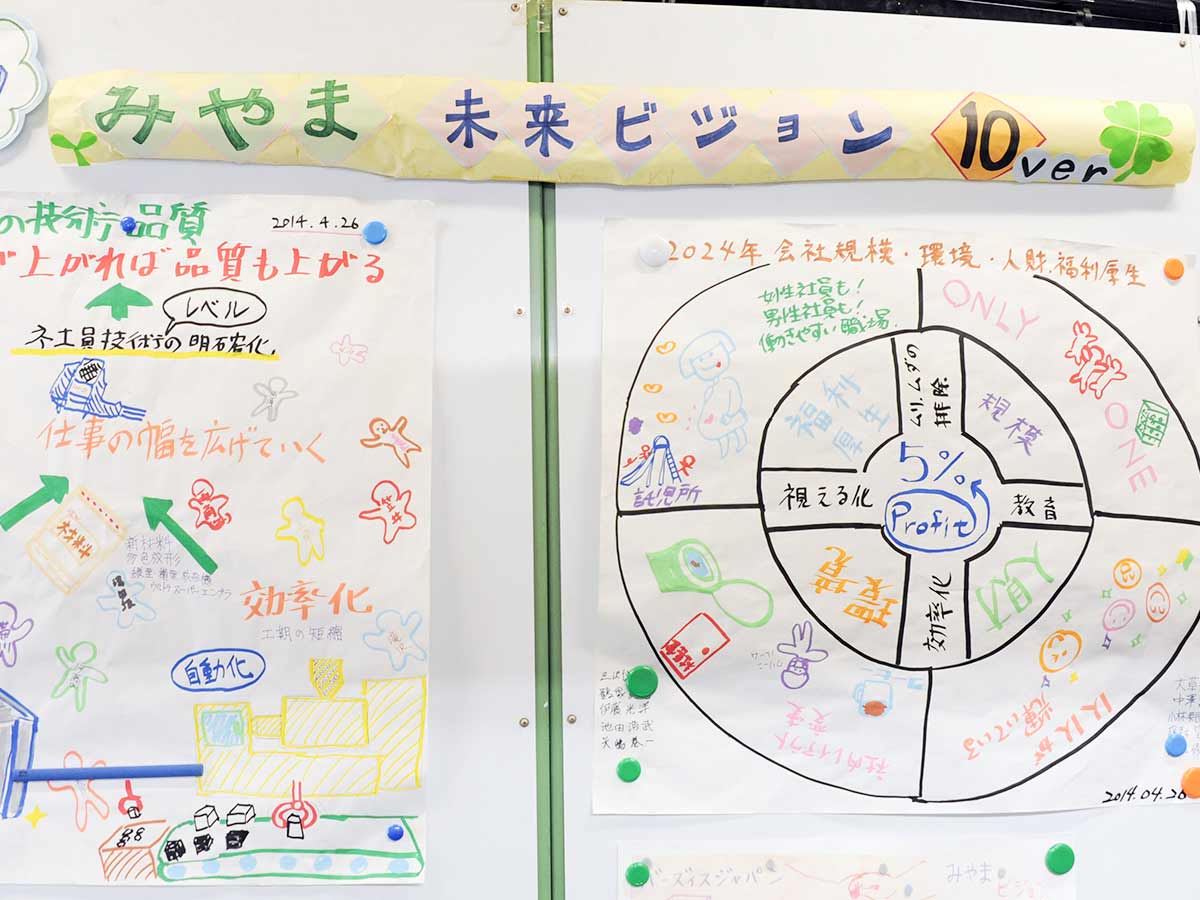 みやま 未来ビジョン 10ver
の技術 品質
2014.4.26
が上がれば品質も上がる
レベル
社員技術の明確化
仕事の幅を広げていく
材料
新材料
多色成形
効率化
工期の短縮
自動化
2024年 会社規模・環境・人財.福利厚生
女性社員も!
男性社員も!
働きやすい職場
ONLY
ONE
託児所
福利
厚生
ムリ.ムダの
排除
規模
視える化
5%
Profit
教育
環境
効率化
人財
社内レイアウト
変更
人人が
輝いている
池田
2014.04.26
ズイスジャパン
みやま
ビジョン